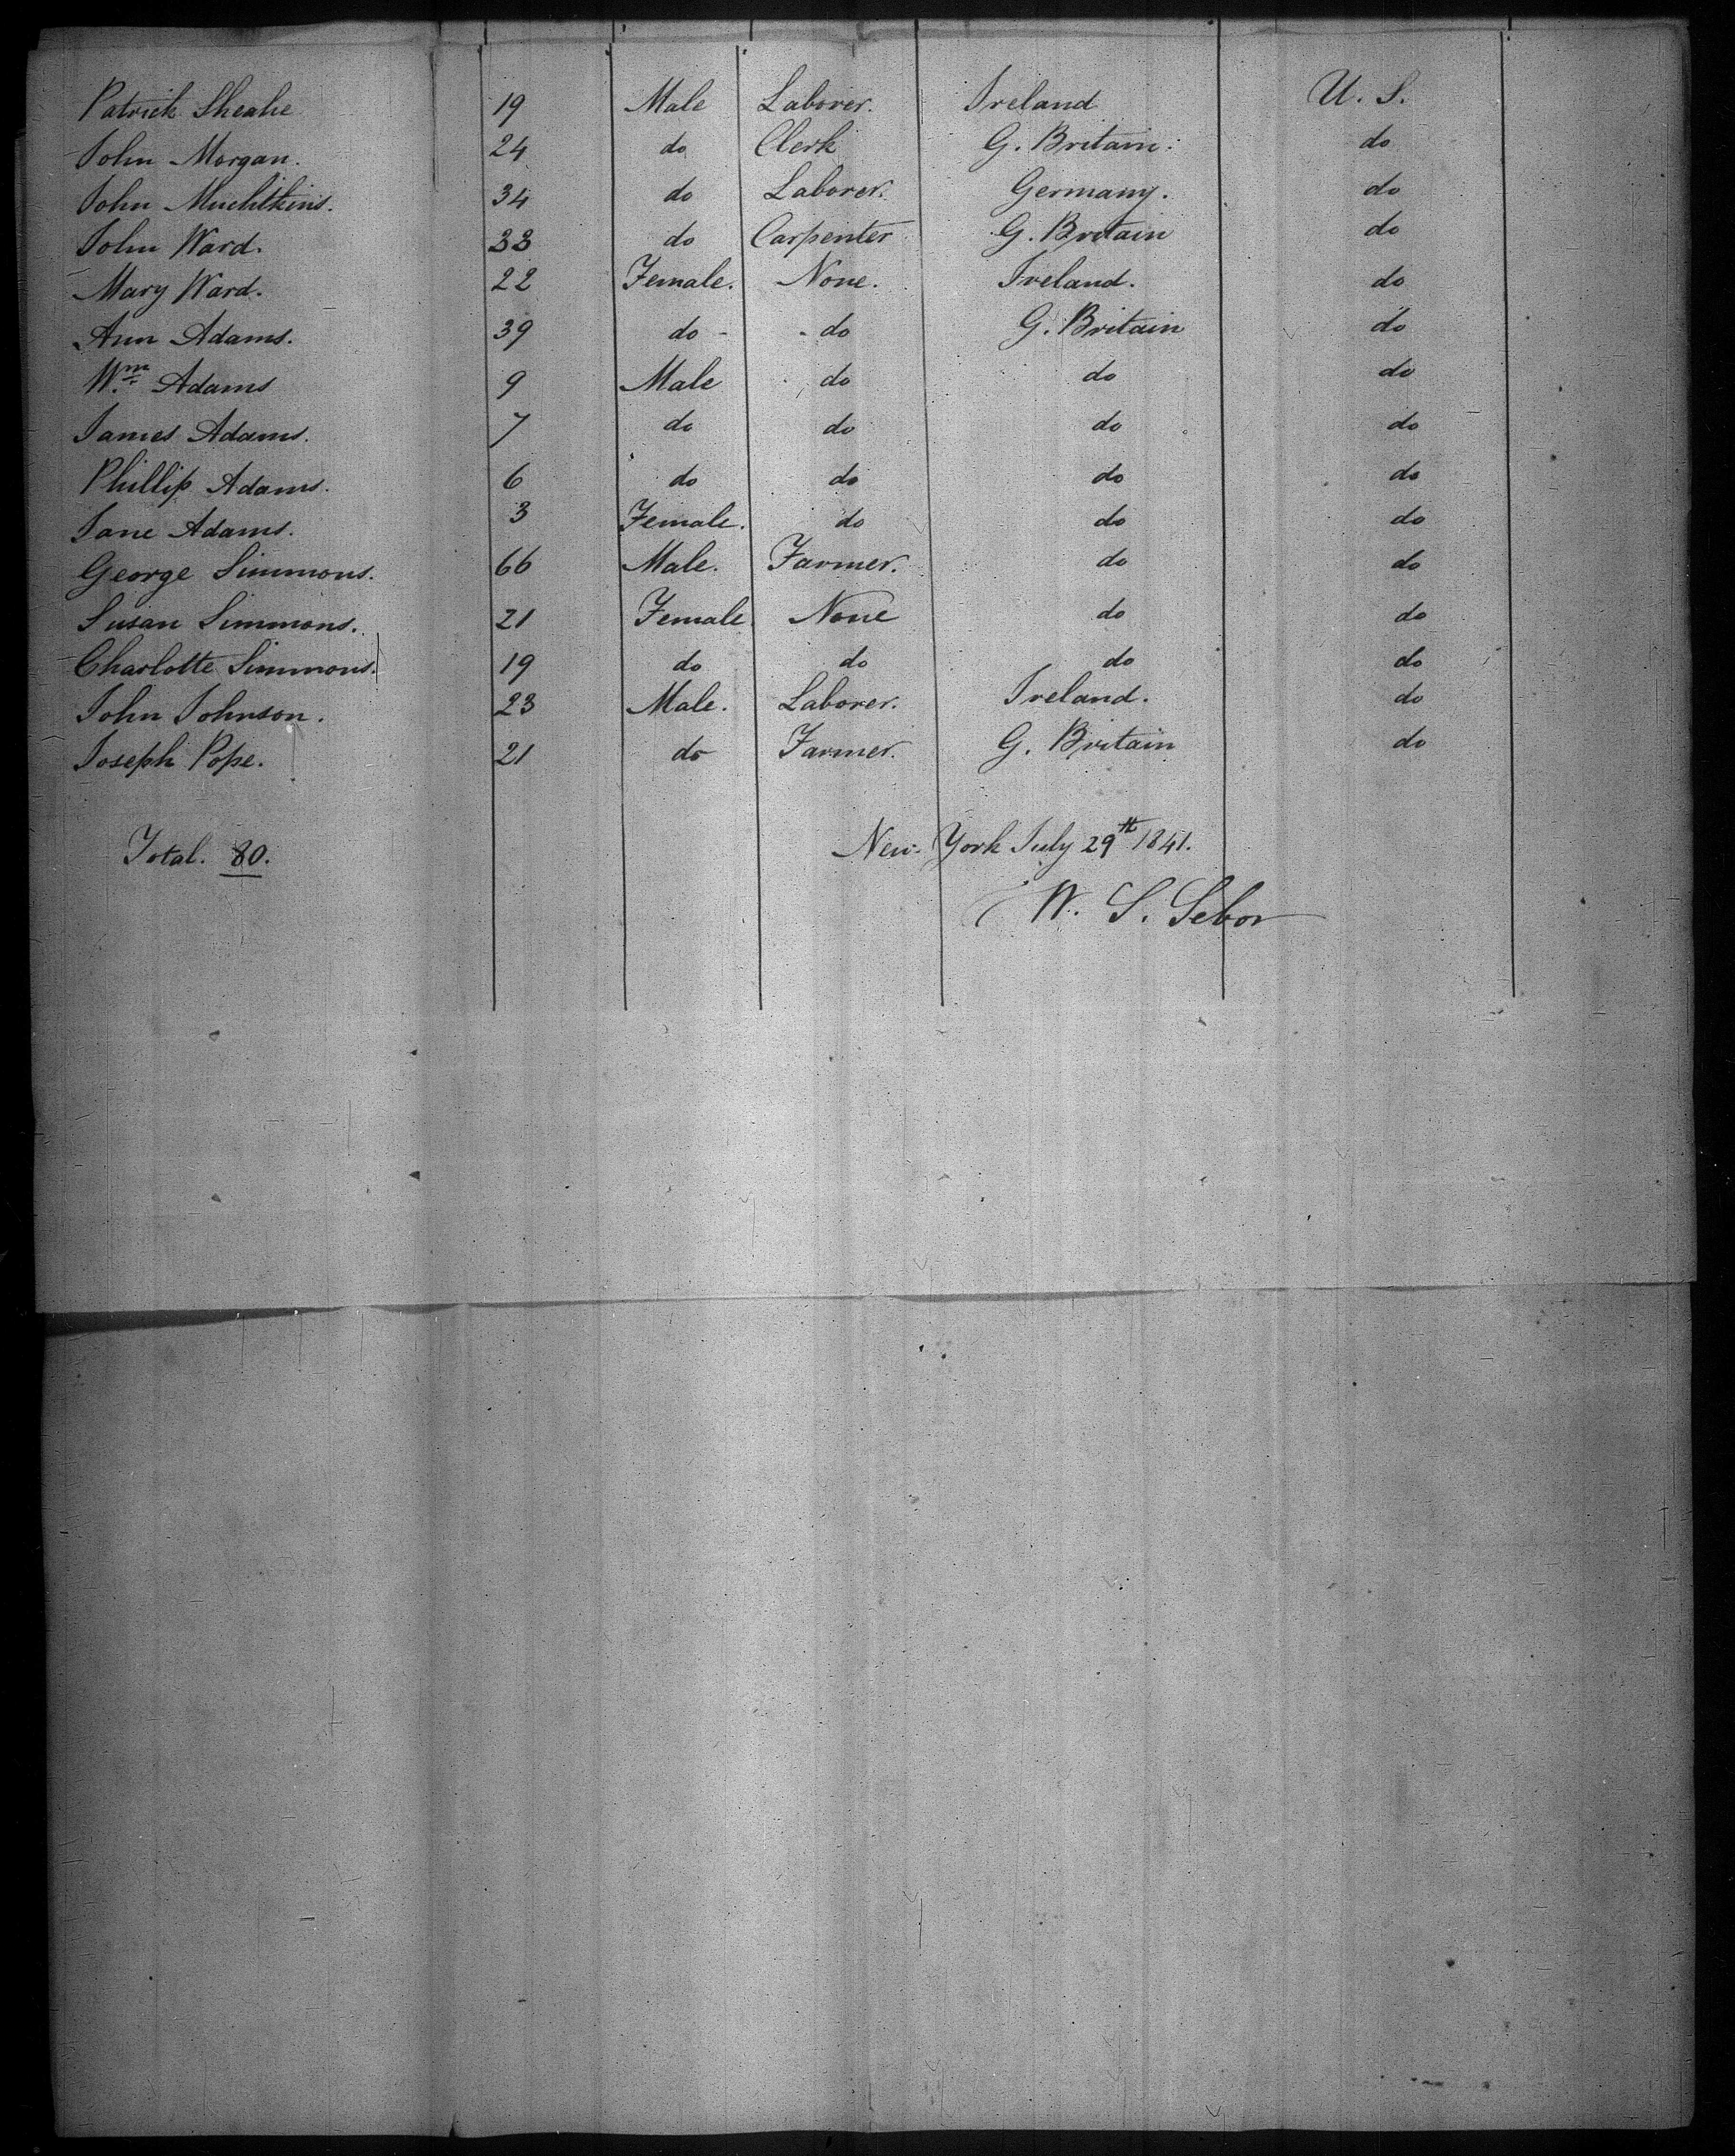 Patrick Sheahe 19 Male Laborer. Ireland U. S.
John Morgan. 24 do Clerk G. Britain. do
John Muchlkins. 34 do Laborer. Germany. do
John Ward. 33 do Carpenter G. Britain do
Mary Ward. 22 Female. None. Ireland. do
Ann Adams. 39 do - do G. Britain do
Wm. Adams 9 Male do do do
James Adams. 7 do do do do
Phillip Adams. 6 do do do do
Jane Adams. 3 Female. do do do
George Simmons. 66 Male. Farmer. do do
Susan Simmons. 21 Female None do do
Charlotte Simmons. 19 do do do do
John Johnson. 23 Male. Laborer. Ireland. do
Joseph Pope. 21 do Farmer. G. Britain do
Total. 80. New York July 29th 1841.
W. S. Sebor